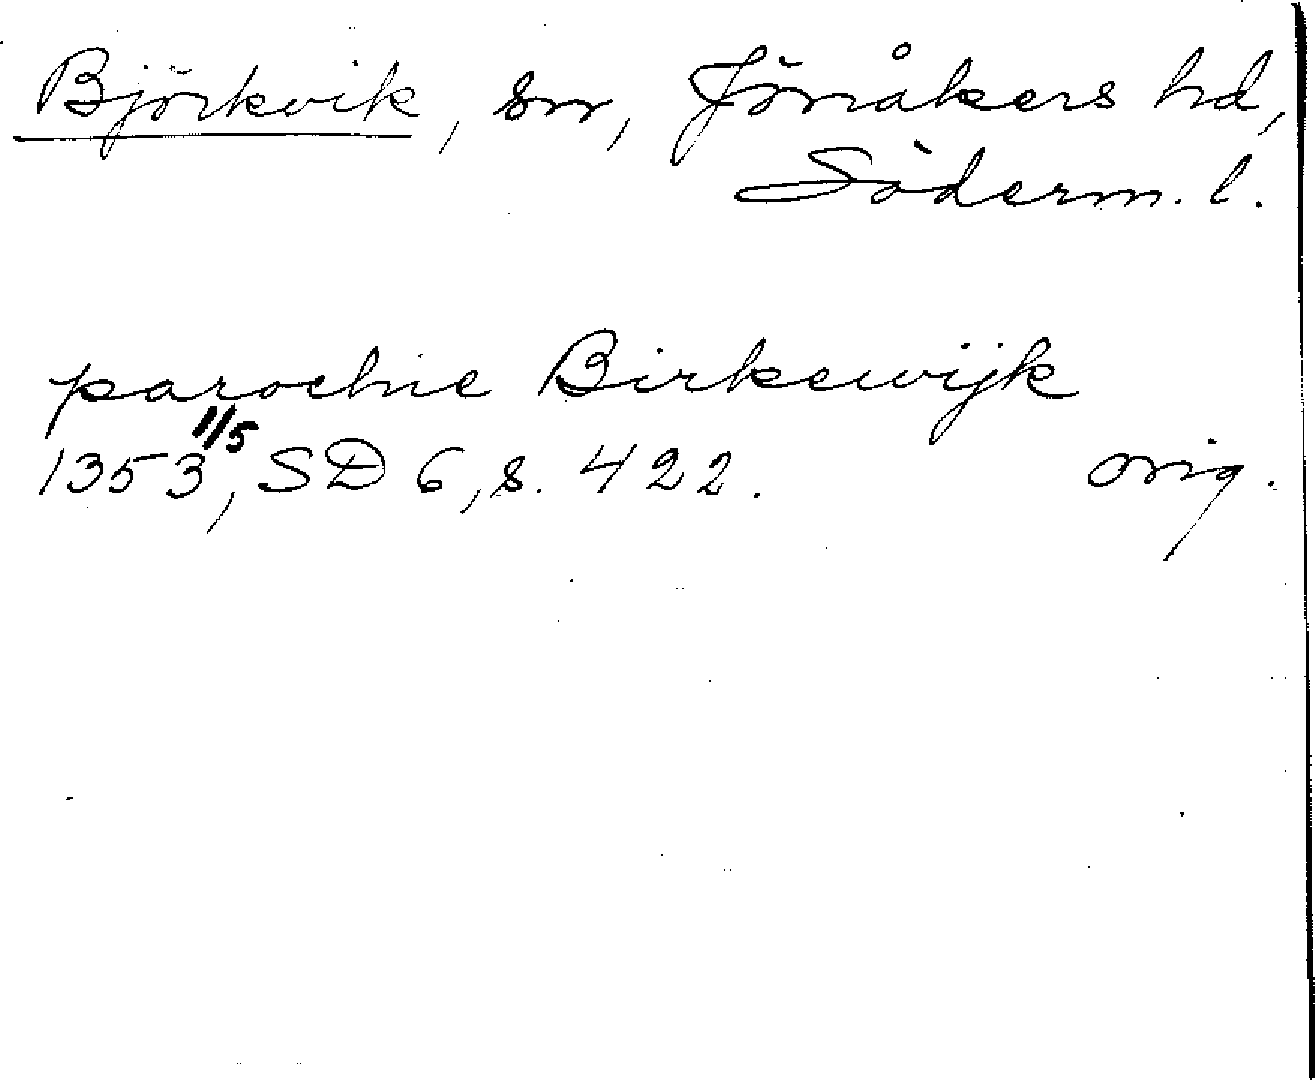 Björkvik, sn, Jönåkers hd,
Söderm. l.
parochie Birkewijk
1353 1/5, SD 6, s. 422. orig.